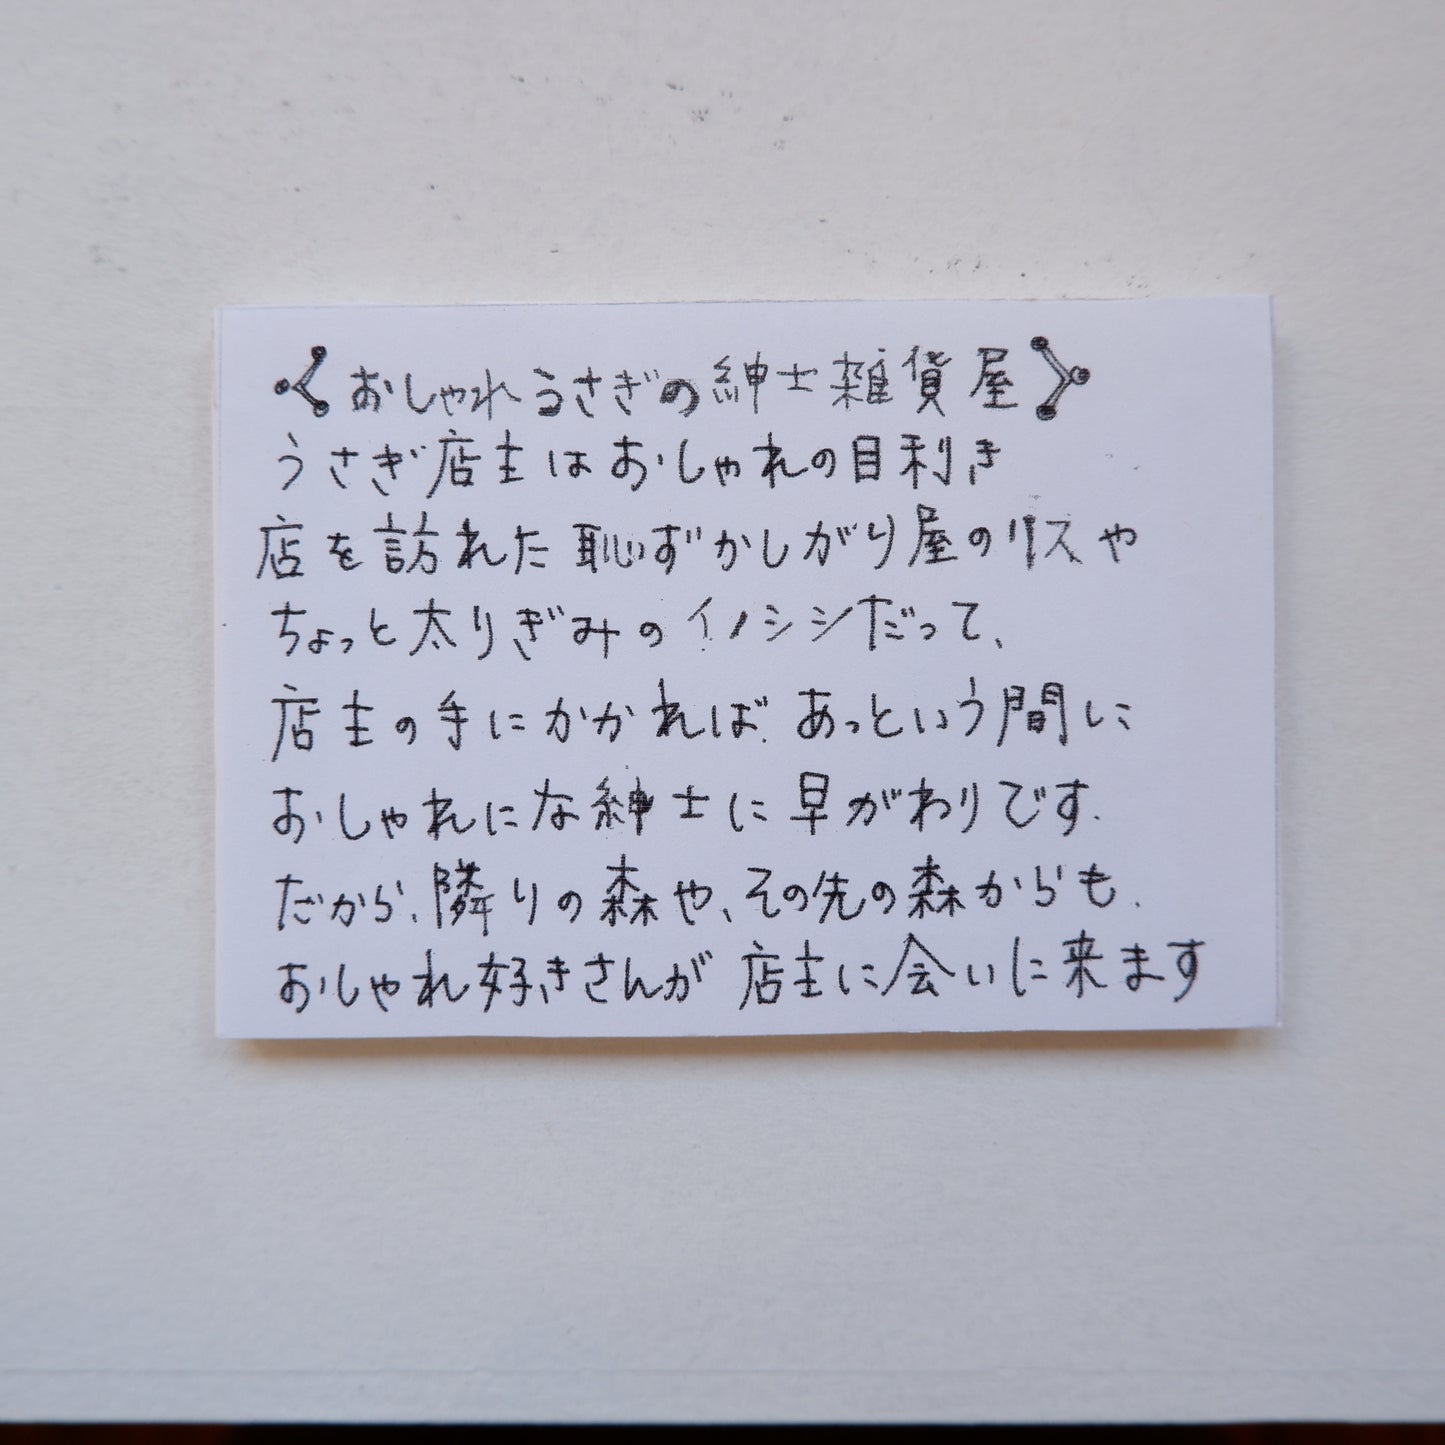 〈おしゃれうさぎの紳士雑貨屋〉
うさぎ店主はおしゃれの目利き
店を訪れた恥ずかしがり屋のリスや
ちょっと太りぎみのイノシシだって、
店主の手にかかれば、あっという間に
おしゃれにな紳士に早がわりです.
だから、隣りの森や、その先の森からも、
おしゃれ好きさんが店主に会いに来ます